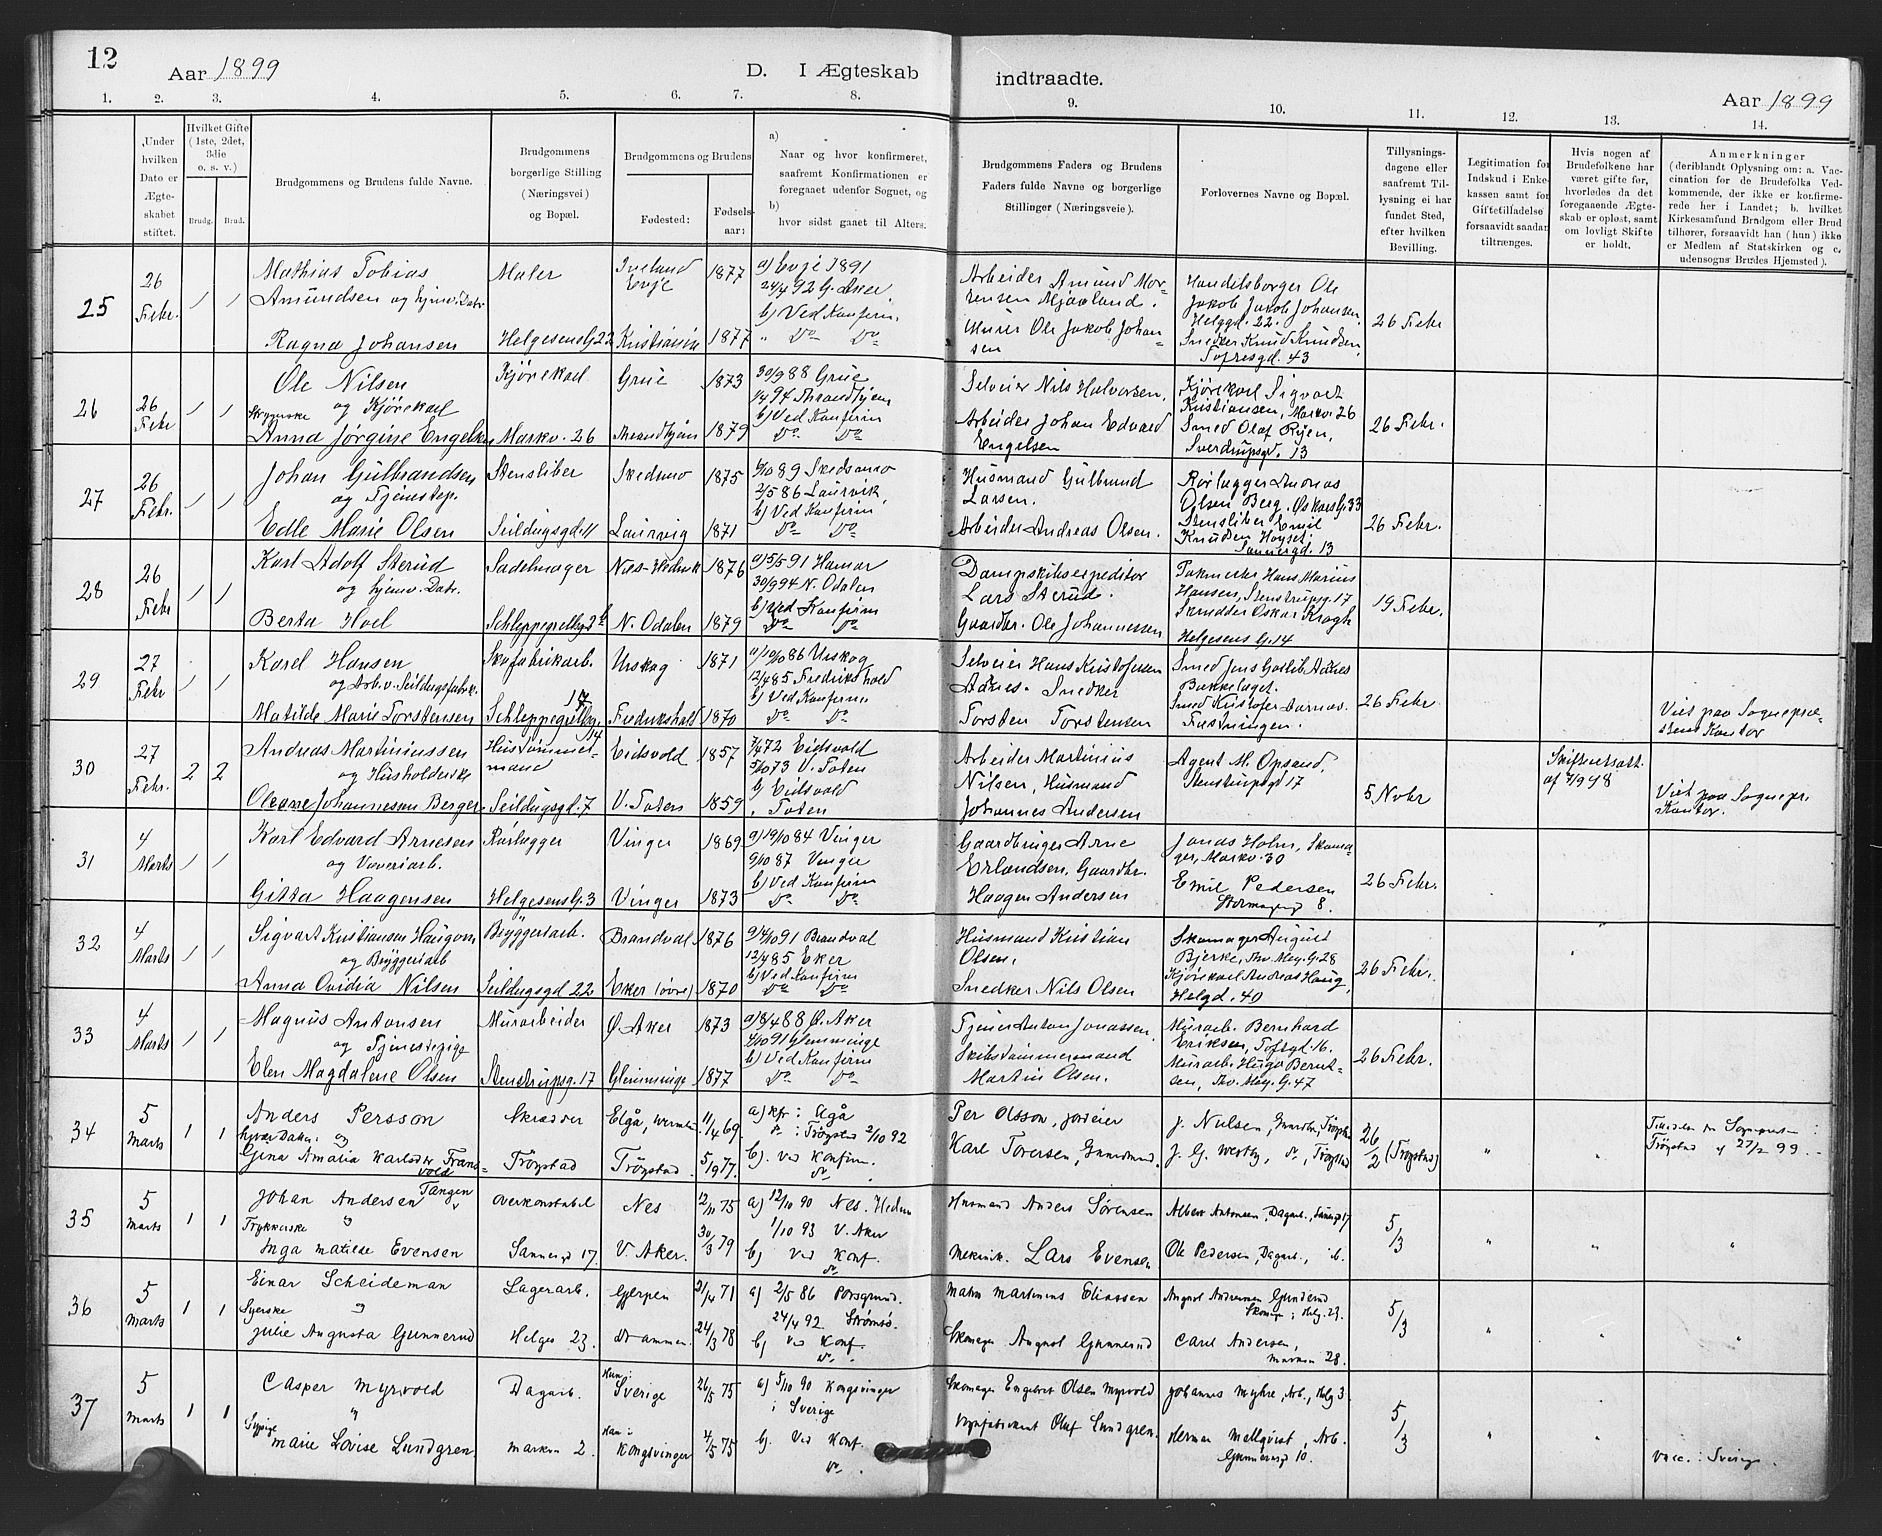 12
Aar 1899
D. I Ægteskab
indtraadte.
Aar 1899
1. 2. 3. 4. 5. 6. 7. 8. 9. 10. 11. 12. 13. 14.
Under hvilken Dato er Ægteskabet stiftet.
Hvilket Gifte (1ste, 2det, 3die o. s. v.)
Brudg. Brud.
Brudgommens og Brudens fulde Navne.
Brudgommens borgerlige Stilling (Næringsvei) og Bopæl.
Brudgommens og Brudens
Fødested:
Fødselsaar:
a) Naar og hvor konfirmeret, saafremt Konfirmationen er foregaaet udenfor Sognet, og
b) hvor sidst gaaet til Alters.
Brudgommens Faders og Brudens Faders fulde Navne og borgerlige Stillinger (Næringsveie).
Forlovernes Navne og Bopæl.
Tillysningsdagene eller saafremt Tillysning ei har fundet Sted, efter hvilken Bevilling.
Legitimation for Indskud i Enkekassen samt for Giftetilladelse forsaavidt saadan tiltrænges.
Hvis nogen af Brudefolkene har været gifte før, hvorledes da det foregaaende Ægteskab er opløst, samt om lovligt Skifte er holdt.
Anmerkninger (deriblandt Oplysning om: a. Vaccination for de Brudefolks Vedkommende, der ikke er konfirmerede her i Landet; b. hvilket Kirkesamfund Brudgom eller Brud tilhører, forsaavidt han (hun) ikke er Medlem af Statskirken og c. udensogns Brudes Hjemsted).
25 26 Febr. 1 1
Mathias Tobias Maler Iveland Evje 1877 a) Evje 1891
Amundsen og hjemv. Datr. 24/4 92 G. Aker.
b) Ved Konfirm.
Ragna Johansen Helgesensg 22 Kristiania 1877 " Do Do
Arbeider Amund Mortensen Mjaaland.
Murer Ole Jakob Johansen
Handelsborger Ole Jakob Jakob Johansen, Helggd. 22.
Snedker Knud Knudsen, Toftesgd. 43
26 Febr
26 26 Febr 1 1
Ole Nilsen Kjørekarl Grue 1873 30/9 88 Grue
og Kjørekarl
b) Ved Konfirm
Anna Jørgine Engelsen Markv. 26 1879 Do Do
Selveier Nils Halvorsen,
Arbeider Johan Edvard Engelsen
Kjørekarl Sigvart Kristiansen, Markv. 26
Smed Olaf Ryen, Sverdrupsgd. 13
26 Febr.
27 26 Febr. 1 1
Johan Gulbrandsen Stensliber Skedsmo 1875 89 Skedsmo
og Tjenestep. 2/5 86 Laurvik,
b) Ved Konfirm
Edle Marie Olsen Seildugsgd. 11 Laurvig 1871 Do Do
Husmand Gulbrand Larsen.
Arbeider Andreas Olsen.
Rørlægger Andreas Olsen Berg, Oskarsg. 33
Stensliber Emil Knudsen
Sannergd. 13
26 Febr.
28 26 Febr 1 1
Karl Adolf Sterud Sadelmager Næs-Hedmk 1876 a) 15/5 91 Hamar
og hjemv. Datr. 30/9 94 N. Odalen
b) Ved Konfirm
Berta Hoel N. Odalen 1879 Do Do
Dampskibsexpeditør Lars Sterud.
Gaardbr. Ole Johannessen
Pakmester Hans Marius Hansen, Stenstrupsg. 17
Skrædder Oskar Kragh
Helgesens G. 14
19 Febr.
29 27 Febr 1 1
Karel Hansen Skofabrikarb. Urskog 1871 a) 10/10 86 Urskog
og Arb. v. Seildugsfabrik. 12/4 85 Fredrikshald
b) Ved Konfirm.
Matilde Marie Torstensen Fredrikshald 1870 Do Do
Selveier Hans Kristofersen Aanes. Snedker
Torsten Torstensen
Smed Jens Gotlib Aanes Bakkelaget.
Smed Kristofer
26 Febr.
Viet paa Sognepræstens Kontor
30 27 Febr. 2 2
Andreas Martiniussen Hustømmermand Eidsvold 1857 72 Eidsvold
og Husholderske 5/10 73 V. Toten
b) Eidsvold
Oleane Johannesen Berger. Seildugsgd. 7 V. Toten 1859 . Toten
Arbeider Martinius Nilsen, Husmand
Johannes Andersen
Agent M. Opsand. Stenstrupsgd 17
5 Novbr
Skifteattest af
Viet paa Sognepr. Kontor.
31 4 Marts 1 1
Karl Edvard Arnesen Rørlægger Vinger 1869 a) 19/10 84 Vinger
og Væveriarb. 9/10 87 Vinger
b) Ved Konfirm
Gitta Haagensen Helgesens G. 3 Vinger 1873 Do Do
Gaardbruger Arne Erlandsen, Gaardbr.
Haagen Andersen
Jonas Holm, Skomager, Markv. 30
Emil Pedersen
8.
26 Febr.
32 4 Marts 1 1
Sigvart Kristiansen Haugom Bryggeriarb. Brandval 1876 91 Brandval
og Bryggeriarb 12/4 85 Eker
b) Ved Konfirm
Anna Ovidia Nilsen Seildugsgd 22 Eker (øvre) 1870 Do Do
Husmand Kristian Olsen,
Snedker Nils Olsen
Skomager August Bjerke, Thv. Mey. G. 28
Kjørekarl Andreas Haug, Helgd. 40
26 Febr.
33 4 Marts 1 1
Magnus Antonsen Murarbeider Ø. Aker 1873 a) 8/4 88 Ø. Aker
og Tjenestepige 91 Glemminge
b) Ved Konfirm
Elen Magdalene Olsen Stenstrupsg. 17 Glemminge 1877 Do Do
Tjener Anton Jonassen.
Skibstømmermand Martin Olsen.
Murarb. Bernhard Eriksen, Toftgd. 16.
Murarb. Hugo Berntsen, Thv. Mey. G. 47
26 Febr.
34 5 Marts 1 1
Anders Persson Skrædder Elgå, Wermld. 11/4 69 a) kfr: Elgå
" : Trøgstad 2/10 92
Gina Amalia Karlsdr Fransvold Trøgstad Trøgstad 5/9 77. b). ved Konfirm.
Per Olsson, jordeier
Karl Torersen, Gaardmand.
J. Nielsen, Gaardbr., Trøgstad
J. G. Westby, do, Trøgstad
26/2 (Trøgstad)
Trøgstad 27/2 99.
35 5 Marts 1 1
Johan Andersen Tangen overkonstabel Nes 12/11 75 a) 12/10 90 Nes. Hedm
Trykkerske 1/10 93 V. Aker
Inga Matilde Evensen Sannergd 17. V. Aker. 30/3 79 b) ved Konf.
Husmand Anders Sørensen
Mekanik. Lars Evensen
Albert Antonsen, Dagarb., Sannergd 17
Ole Pedersen, Dagarb., ib.
5/3
36 5 Marts 1 1
Einar Scheideman Lagerarb. Gjerpen 21/4 71 a) 2/5 86 Porsgrund.
Syerske 24/4 92 Strømsø.
Julie Augusta Gunnerud Helges 23. Drammen. 24/3 78 b) ved Konf.
Martinius Eliassen
Skomager August Gunnerud
August Andersen Gunnerud Skomager, Helg. 23.
Carl Andersen, Markvn 28.
5/3
37 5 Marts 1 1
Casper Myrvold Dagarb. Sverige 26/5 75 a) 5/10 90 Kongsvinger
i Sverige
Sypige
Marie Lovise Lundgren Markvn 2. Kongsvinger 4/5 75 b). ved Konf.
Skomager Engebret Olsen Myrvold
Oluf Lundgren.
Johannes Myhre, Arb., Helg 3.
Herman Mellqvist, Arb. Gunnersgd 10.
5/3
vacc. i Sverige.